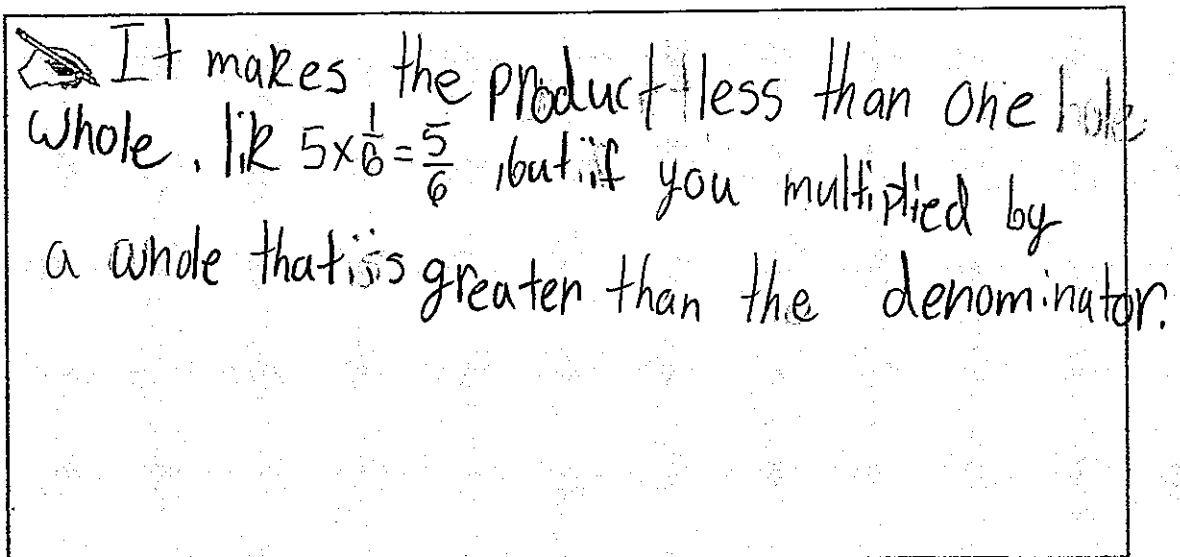 It makes the product less than one hole
whole. lik 5×1/6=5/6 ,but if you multiplied by
a whole that is greater than the denominator.